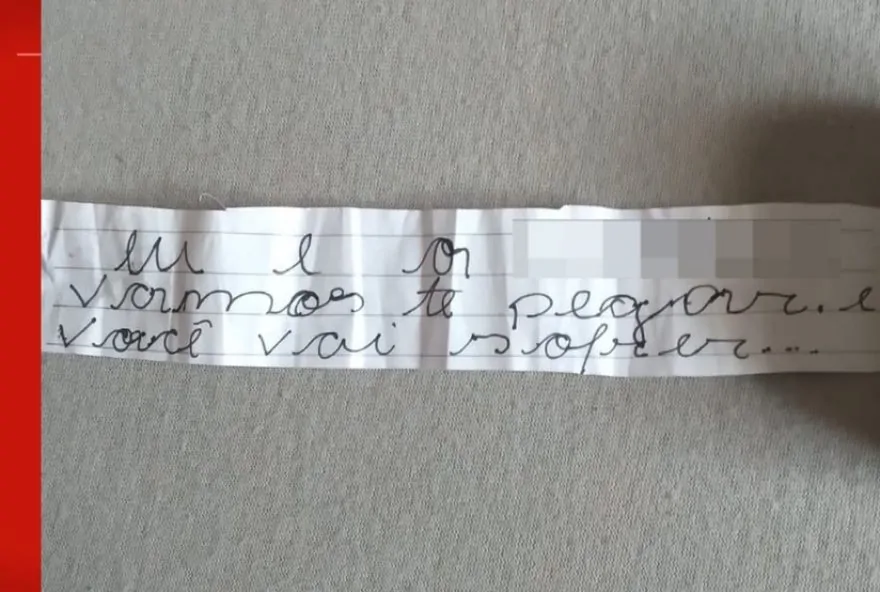 eu e a
vamos te pegar. e
você vai sofrer...